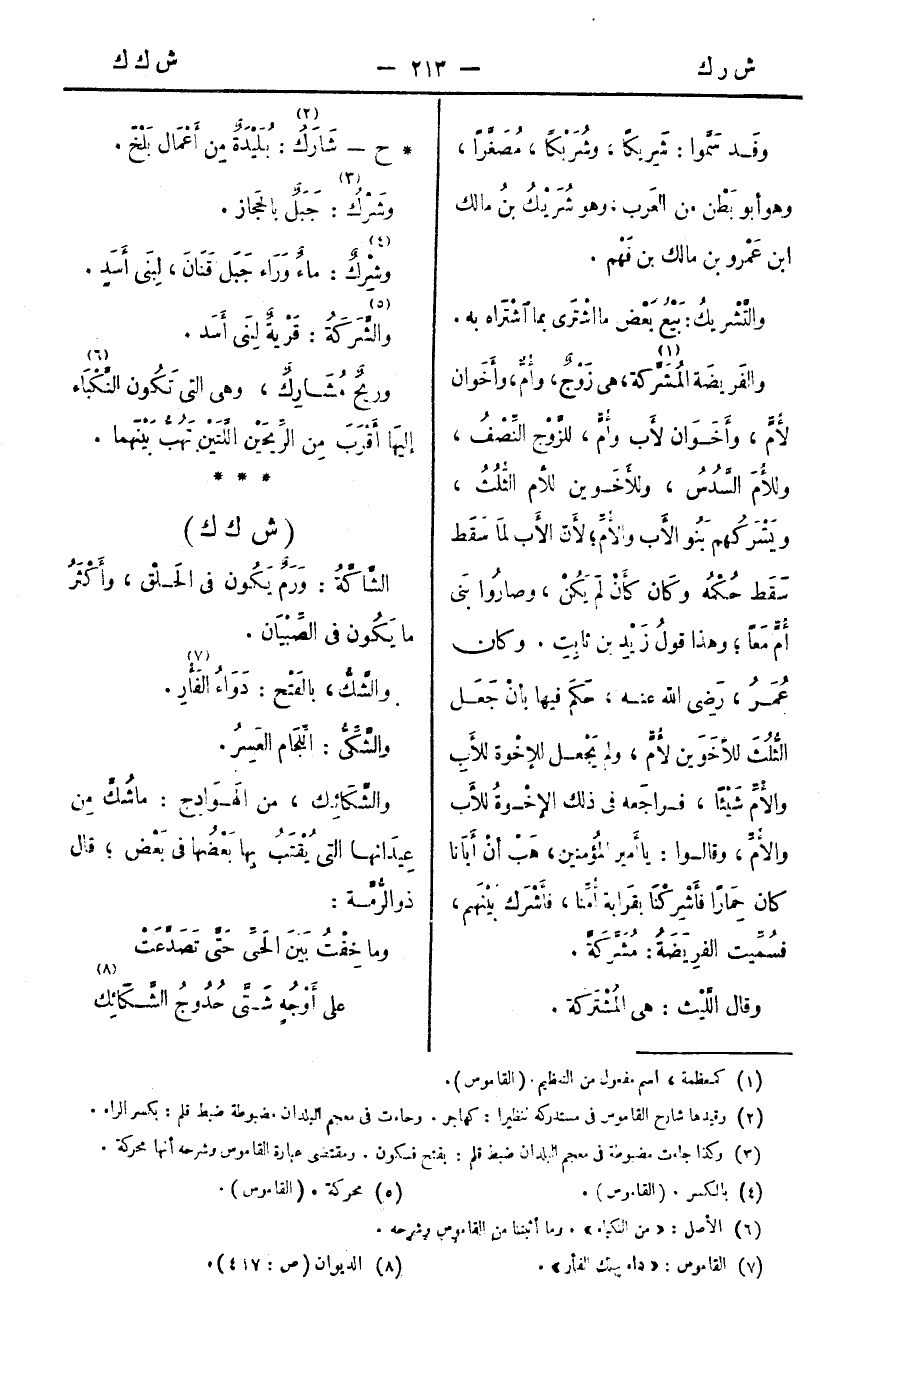 ش ر ك
— ٢١٣ —
ش ك ك
وقَد سَمَّوا : شَرِيكًا ، وشُرَيْكًا ، مُصَغَّرًا ،
وهو أبو بَطْن من العرب ، وهو شُرَيْكُ بنُ مالك
ابن عَمْرو بن مالك بن فَهْم .
والتَّشْرِيكُ : بَيْعُ بَعْض ما اشْتَرى بما اَشْتَراه به .
والفَرِيضَة المُشَرَّكة (١) ، هى زَوْجٌ ، وأمٌّ ، وأخَوان
لأمٍّ ، وأَخَوان لأَب وأُمٍّ ، للزَّوْج النِّصْف ،
وللأُمّ السُّدُسُ ، وللأَخَوين للأم الثُّلُث ،
ويَشْرَكُهم بَنُو الأَب والأُمِّ ؛ لأَنّ الأَب لمَا سَقَط
سَقَط حُكْمُه وكَان كأَنْ لَم يَكُنْ ، وصارُوا بَنى
أُمٍّ مَعًا ؛ وهذا قولُ زَيْدِ بن ثابِت . وكان
عُمَرُ ، رَضِى الله عنه ، حَكَم فيها بأنْ جَعَل
الثُّلُثَ للأخَوَين لأُمٍّ ، ولم يَجْعل للإخْوة للأَبِ
والأُمِّ شَيْئًا ، فراجَعه فى ذلك الإخْوةُ للأَب
والأُمِّ ، وقالوا : يا أمير المُؤمنين ، هَبْ أنْ أبَانا
كان حِمارًا فأَشْرِكْنَا بقَرابة أُمِّنا ، فأَشْرك بَيْنَهم ،
فسُمِّيت الفَرِيضَةُ : مُشَرَّكَةً .
وقال اللَّيْث : هى المُشْتَركة .
* ح – شَارَكُ (٢) : بُلَيْدَةٌ مِن أَعْمَال بَلْخَ .
وشَرْكُ (٣) : جَبَلٌ بالحِجَاز .
وشِرْكٌ (٤) : ماءٌ وَرَاء جَبَل قَنَان ، لِبَنى أَسَدٍ .
والشَّرَكَةُ (٥) : قَرْيةٌ لِبَنى أَسَد .
ورِيحٌ مُشَارِكٌ (٦) ، وهى التى تَكُون النَّكْبَاء
إليها أَقْرَبَ مِن الرِّيحَيْن اللَّتَيْن تَهُبُّ بَيْنَهما .
* * *
( ش ك ك )
الشَّاكَّةُ : وَرَمٌ يَكُون فى الحَلْق ، وأَكْثَرُ
ما يَكُون فى الصِّبْيَان .
والشَّكُّ ، بالفَتْح : دَوَاءُ الفَأْر (٧) .
والشَّكِّىُّ : اللِّجَام العَسِرُ .
والشَّكَائِك ، من الهَوادِج : ماشُكَّ مِن
عِيدَانها التى يُقْتَبُ بِها بَعْضُها فى بَعْض ؛ قال
ذو الرُّمَّة :
وما خِفْتُ بَيْنَ الحَىِّ حَتَّى تَصَدَّعَتْ
على أَوْجُهٍ شَتَّى حُدُوجُ الشَّكَائِك (٨)
(١) كمعظمة ، اسم مفعول من التعظيم . (القاموس) .
(٢) وقيدها شارح القاموس فى مستدركه تنظيرا : كهاجر . وجاءت فى معجم البلدان مضبوطة ضبط قلم : بكسر الراء .
(٣) وكذا جاءت مضبوطة فى معجم البلدان ضبط قلم : بفتح فسكون . ومقتضى عبارة القاموس وشرحه أنها محركة .
(٤) بالكسر . (القاموس) .
(٥) محركة . (القاموس) .
(٦) الأصل : « من النكباء » . وما أثبتنا من القاموس وشرحه .
(٧) القاموس : « داء يهتك الفأر » .
(٨) الديوان (ص : ٤١٧) .